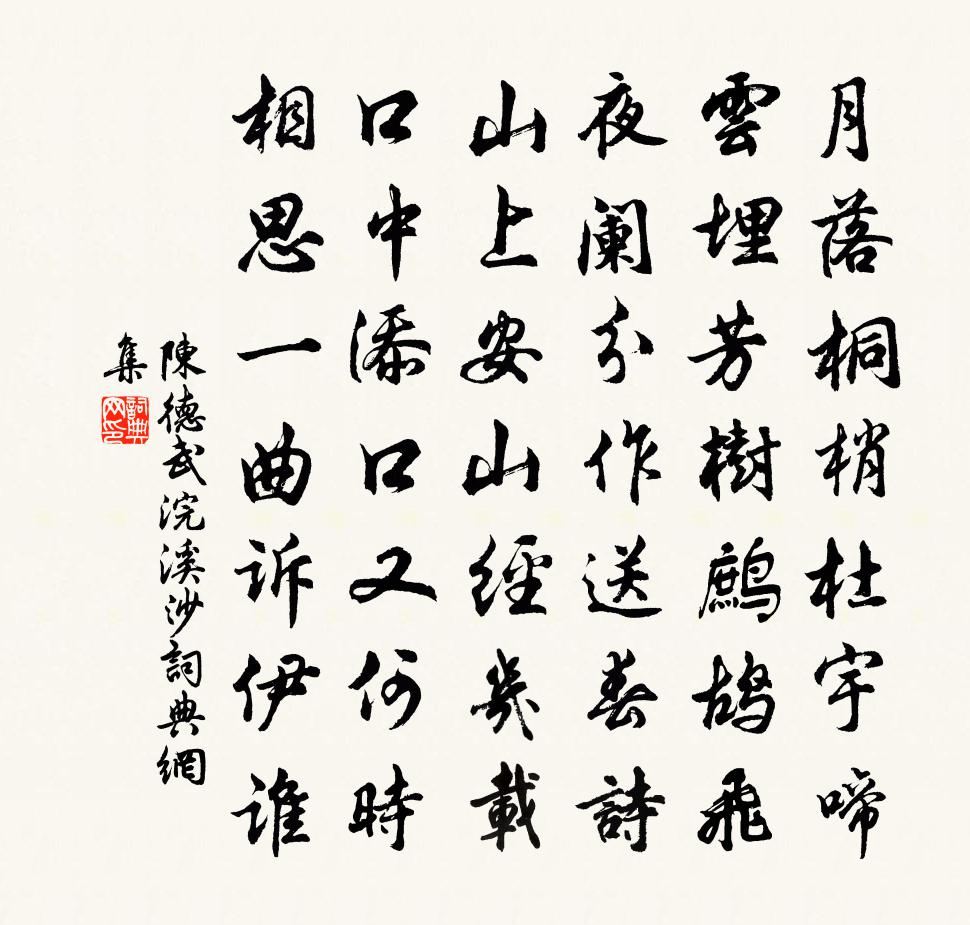 月落桐梢杜宇啼
雲埋芳樹鷓鴣飛
夜闌分作送春詩
山上安山經幾載
口中添口又何時
相思一曲訴伊誰
陳德武浣溪沙詞典網
集
詞典网印